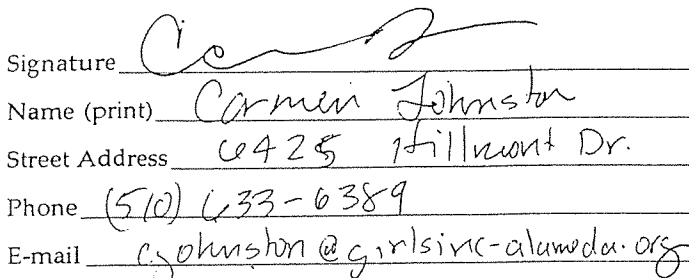 Signature
Name (print) Carmen Johnston
Street Address 6425 Hillmont Dr.
Phone (510) 633-6389
E-mail cjohnston@girlsinc-alameda.org